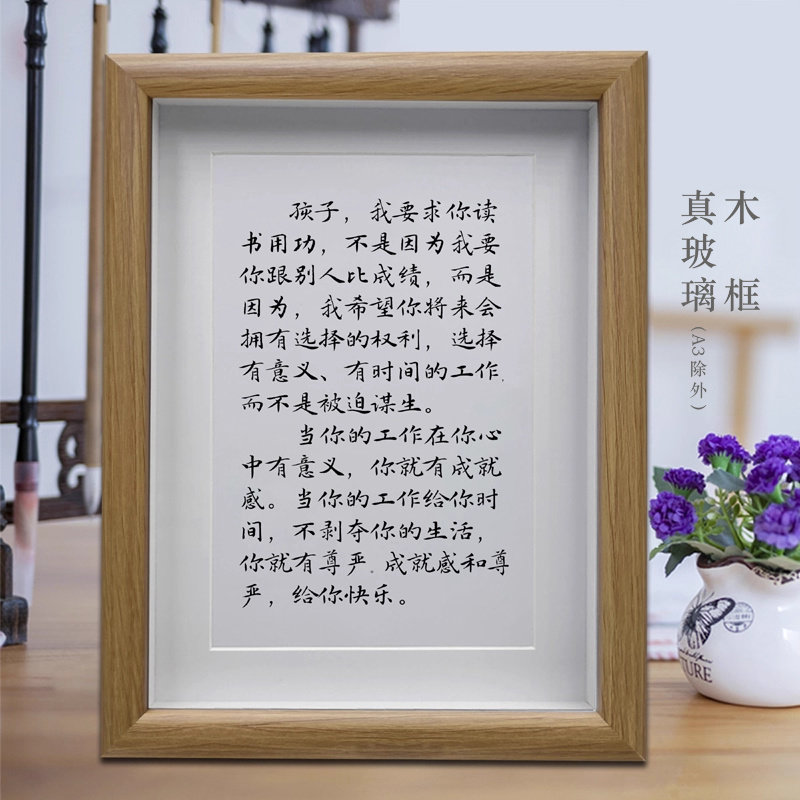 孩子，我要求你读
书用功，不是因为我要
你跟别人比成绩，而是
因为，我希望你将来会
拥有选择的权利，选择
有意义、有时间的工作
而不是被迫谋生。
当你的工作在你心
中有意义，你就有成就
感。当你的工作给你时
间，不剥夺你的生活，
你就有尊严.成就感和尊
严，给你快乐。
木框
真玻璃
(A3除外)
TURE